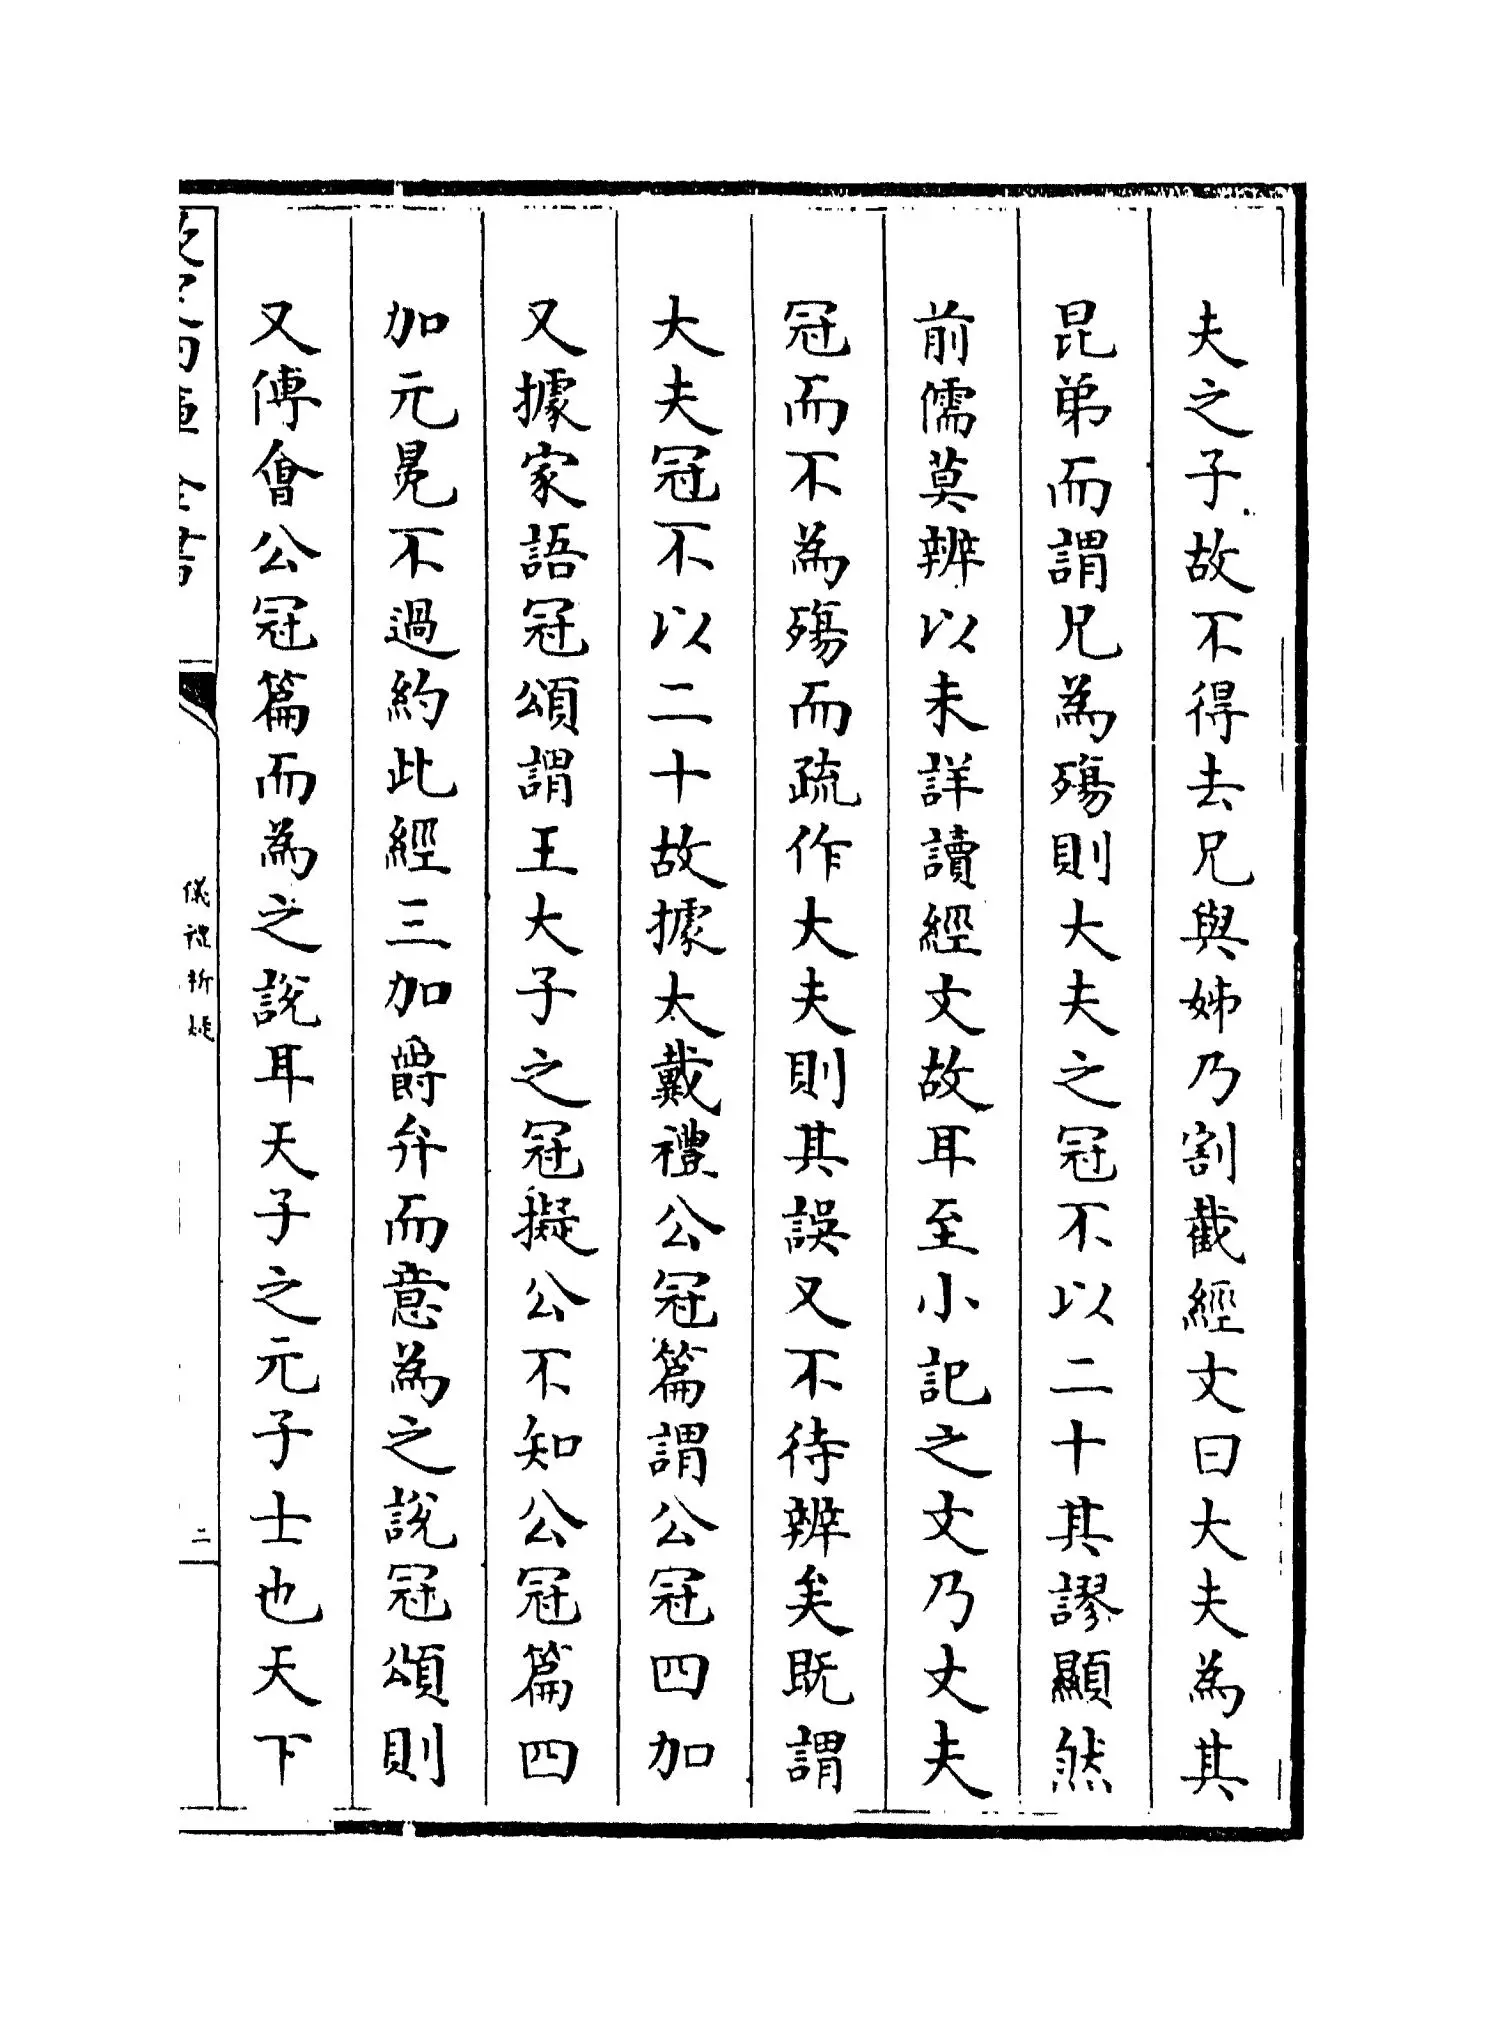 夫之子故不得去兄與姊乃割截經文曰大夫為其
昆弟而謂兄為殤則大夫之冠不以二十其謬顯然
前儒莫辨以未詳讀經文故耳至小記之文乃丈夫
冠而不為殤而疏作大夫則其誤又不待辨矣既謂
大夫冠不以二十故據太戴禮公冠篇謂公冠四加
又據家語冠頌謂王大子之冠擬公不知公冠篇四
加元冕不過約此經三加爵弁而意為之說冠頌則
又傅會公冠篇而為之說耳天子之元子士也天下
儀禮析疑
二